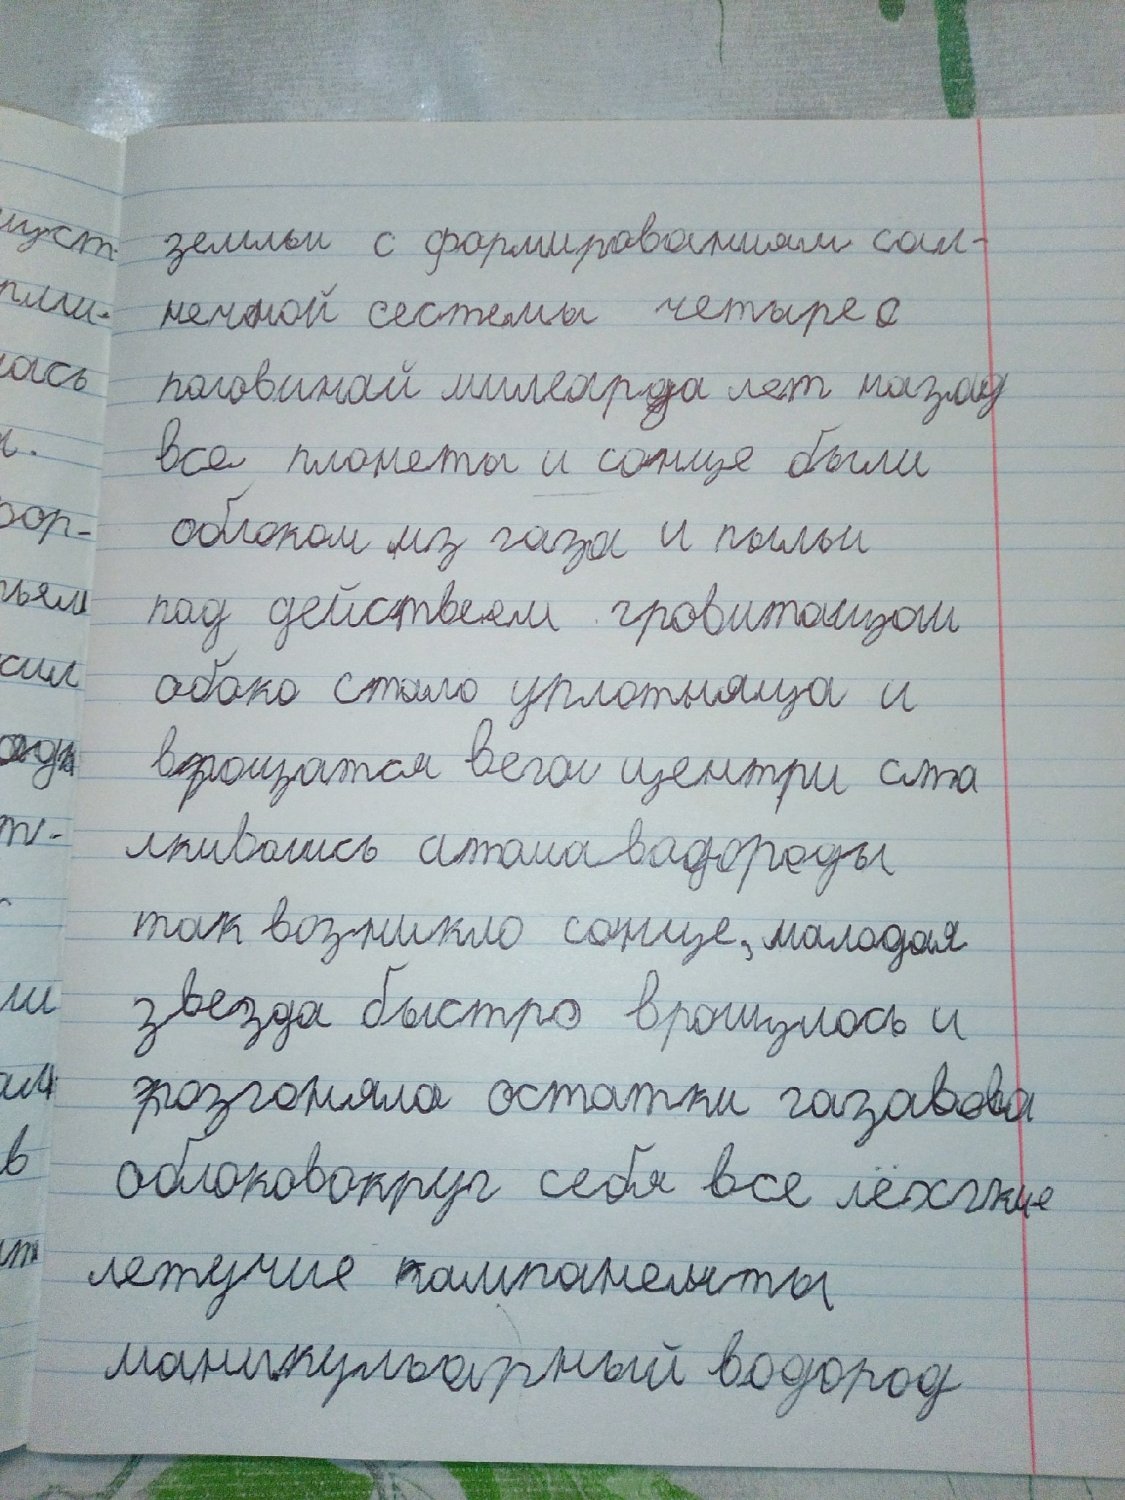 земльи с формированиям сал-
нечной сестемы четыре с
паловинай милеарда лет назад
все планеты и сонце были
облоком из газа и пыльи
пад действеем гровитацои
обоко стало уплотняща и
врощатся вего центри ста
лкивались атама вадороды
так возникло сонце, маладая
звезда быстро врощулось и
розгоняла остатки газавова
облоковокруг себя все лёхгкие
летучие кампаненты
маникульарный водород
уст-
пли-
лась
я.
фор-
тьям
сил
т-
ли
в